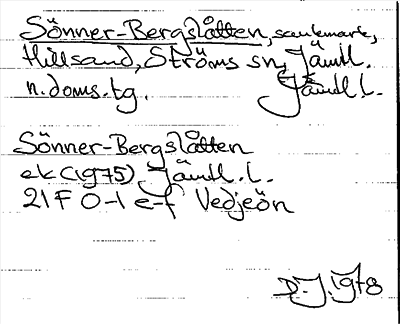 Sönner-Bergslåtten, sankmark,
Hillsand, Ströms sn, Jämtl.
n. doms. tg. Jämtl l.
Sönner-Bergslåtten
ek (1975) Jämtl. l.
21F 0-1 e-f Vedjeön
D.J. 1978